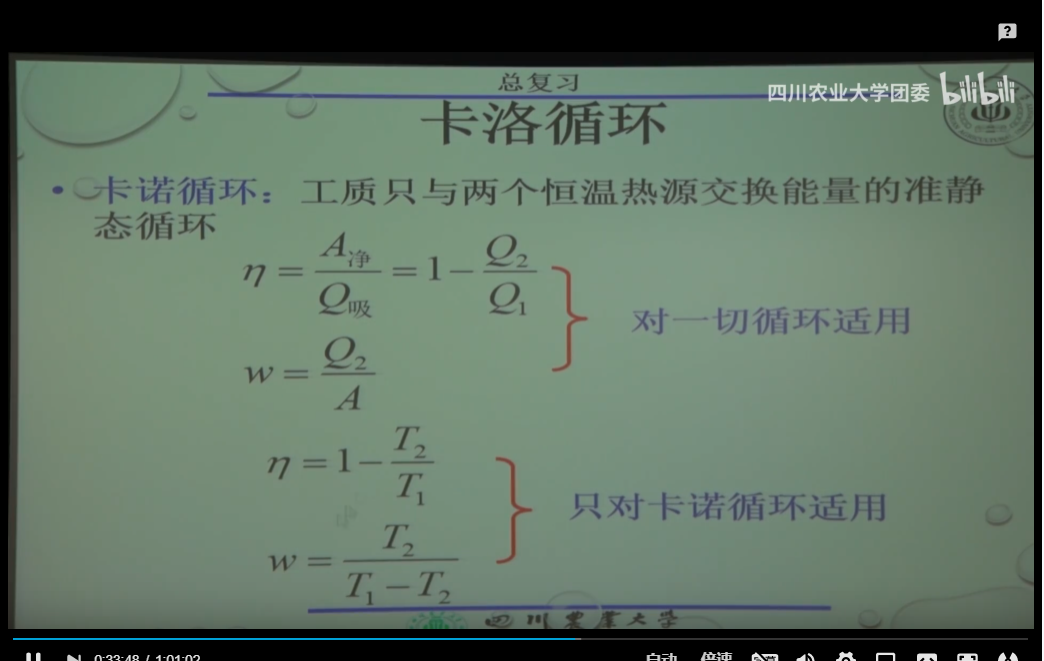 总复习
四川农业大学团委 bilibili
卡洛循环
• 卡诺循环：工质只与两个恒温热源交换能量的准静
态循环
η = A净 / Q吸 = 1 − Q₂ / Q₁
对一切循环适用
w = Q₂ / A
η = 1 − T₂ / T₁
只对卡诺循环适用
w = T₂ / (T₁ − T₂)
四川农业大学
0:33:48 / 1:01:02
自动 倍速